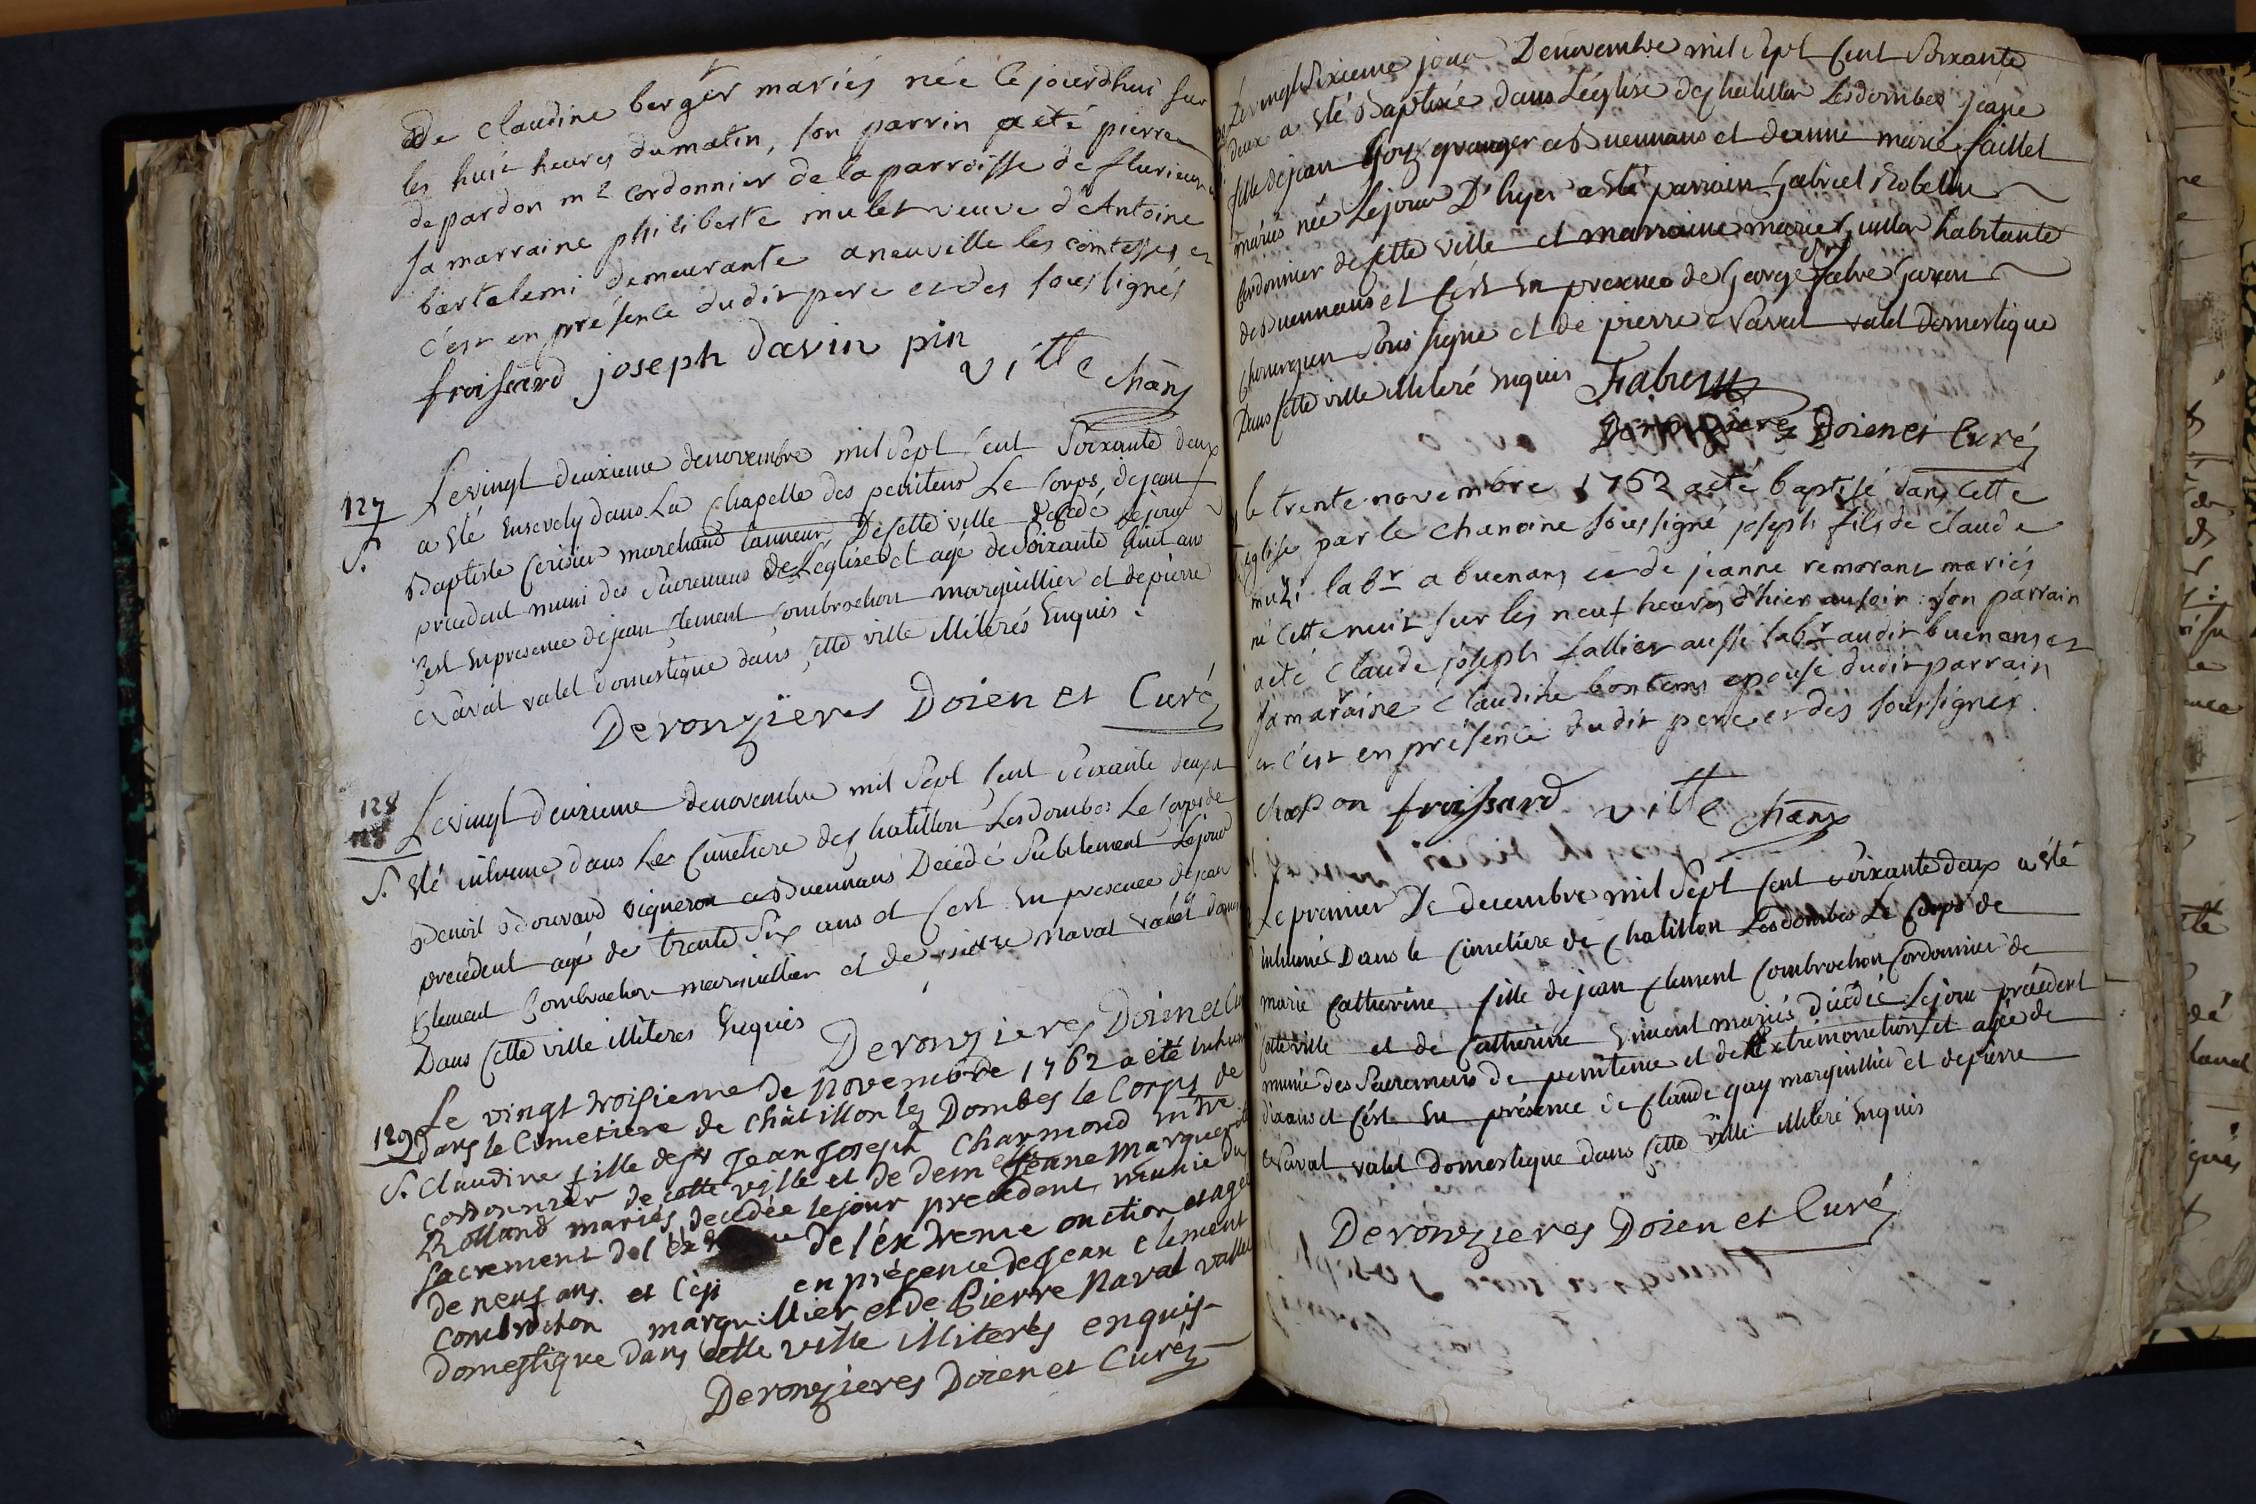 de Claudine berger mariés née ce jourdhui sur
les huit heures du matin, son parrin a eté pierre
depardon me cordonnier de la parroisse de flurieux
sa marraine philiberte mulet veuve d'Antoine
bartelemi demeurante a neuville les comtesses et
c'est en présence dudit pere et des soussignés
froissard joseph davin pin
vitte chan͞e
127
S.
Le vingt deuxieme de novembre mil sept cent soixante deux
a été Ensevely dans La Chapelle des penitens Le Corps de jean
Baptiste Cerisier marchand tanneur De cette ville decedé le jour
precedent muni des Sacremens de L'église et agé de soixante huit ans
C'est En presence de jean Clement Combrochon marguillier et de pierre
Naval valet domestique dans cette ville illiterés Enquis.
Deronzieres Doien et Curé
128
S.
Le vingt deuxieme de novembre mil sept cent soixante deux a
été inhumé dans Le Cimetiere de Chatillon Les dombes Le Corps de
Benoit Bouvard vigneron a Buennans Decedé Subitement Le jour
precedent agé de trente six ans et C'est En presence de jean
Clement Combrochon marguillier et de pierre Naval valet domes
Dans Cette ville illiteres Enquis
Deronzieres Doien et Cu
129
S.
Le vingt troisieme de Novembre 1762 a été inhum
dans le Cimetiere de Châtillon les Dombes le Corps de
Claudine fille de Sr Jean Joseph Charmond me
cordonnier de cette ville et de demelle Jeane Marguerit
Rolland mariés, decedée le jour precedent, munie du
sacrement de l'ex de l'éxtreme onction et agée
de neuf ans. et C'est en présence de Jean Clement
Combrochon marguillier et de Pierre Naval vallet
domestique dans cette ville illiterés enquis
Deronzieres Doien et Curé
Le vingt Sixieme jour De novembre mil sept Cent Soixante
deux a été Baptisée dans L'église de Chatillon Les dombes jeane
fille de jean Goy granger a Buennans et d'anne marie faillet
mariés née Le jour D'hyer a été parrain Gabriel Robelin
Cordonnier de cette ville et marraine marie habitante
de Buennans et C'est En presence de George fabre Garçon
Chirurgien Sous signe et de pierre Naval valet Domestique
Dans Cette ville illiteré Enquis
Deronzieres Doien et Curé
le trente novembre 1762 a été baptisé dans cette
église par le chanoine soussigné joseph fils de claude
labr a buenans et de jeanne remorant mariés
né cette nuit sur les neuf heures d'hier au soir: son parrain
a été claude joseph fallier aussi labr audit buenans et
sa maraine claudine bontems epouse dudit parrain
et c'est en présence dudit pere et des soussignés.
chapon froissard vitte chan͞e
Le premier De decembre mil Sept Cent soixante deux a été
inhumé Dans le Cimetiere de Chatillon Les dombes Le Corps de
marie Catherine fille de jean Clement Combrochon Cordonnier de
Cette ville et de Catherine vincent mariés décédée Le jour précédent
munie des Sacremens de penitence et de L'extremonction et agée de
dix ans et C'est En présence de Claude guy marguillier et de pierre
Naval valet Domestique dans Cette ville illiteré Enquis
Deronzieres Doien et Curé